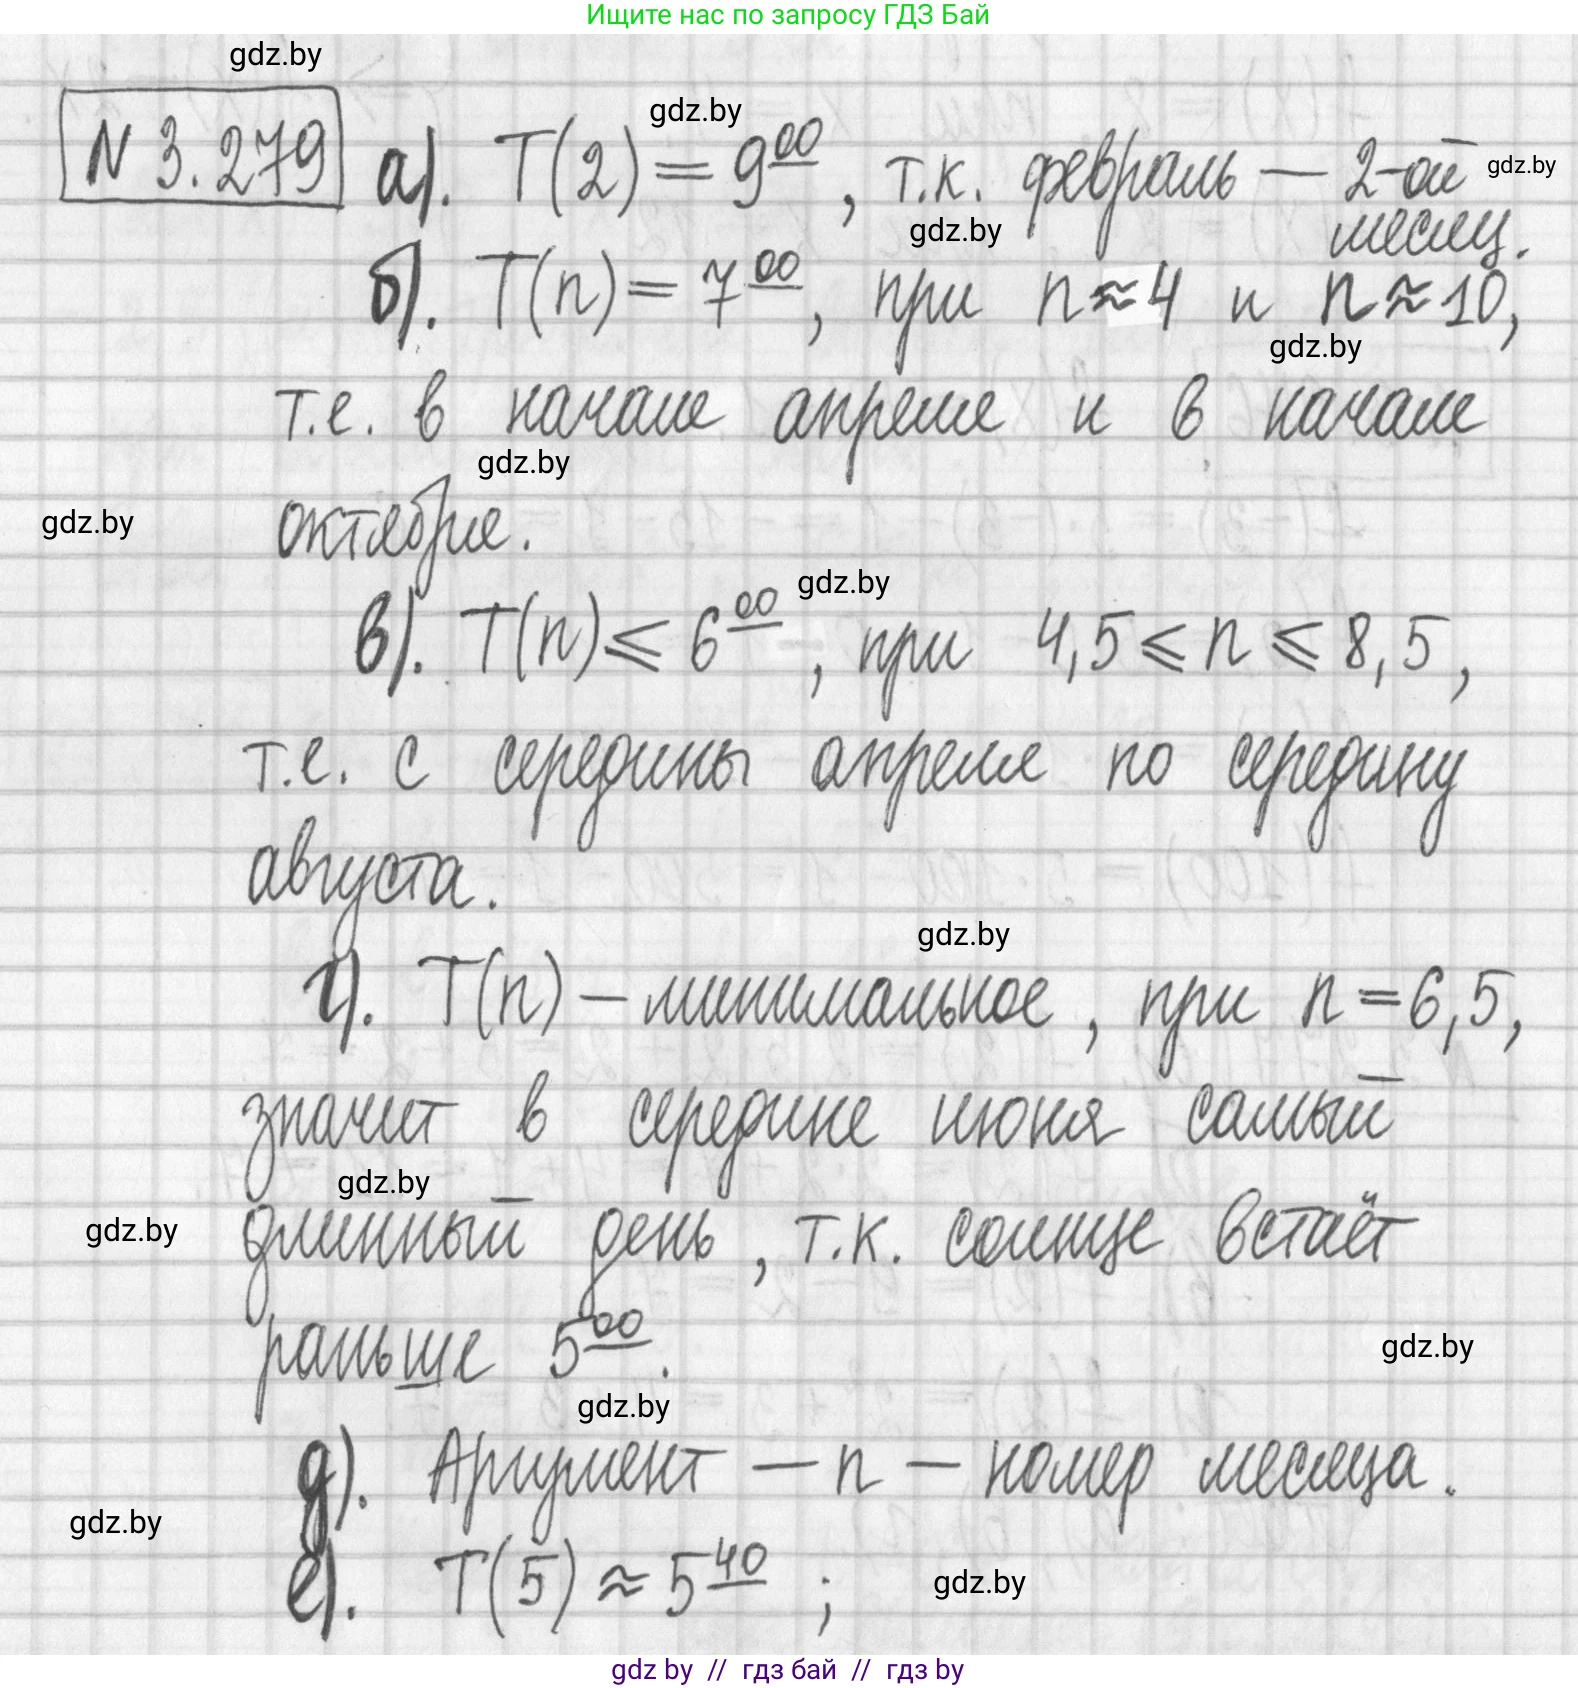 Ищите нас по запросу ГДЗ Бай
gdz.by
gdz.by
N 3.279 а). T(2) = 9 00, т.к. февраль — 2-ой
gdz.by
месяц.
gdz.by
б). T(n) = 7 00, при n ≈ 4 и n ≈ 10,
gdz.by
т.е. в начале апреля и в начале
gdz.by
октября.
gdz.by
gdz.by
в). T(n) ⩽ 6 00, при 4,5 ⩽ n ⩽ 8,5,
т.е. с середины апреля по середину
августа.
gdz.by
г). T(n) – минимальное, при n = 6,5,
значит в середине июня самый
gdz.by
длинный день, т.к. солнце встаёт
gdz.by
раньше 5 00.
gdz.by
gdz.by
д). Аргумент — n — номер месяца.
gdz.by
е). T(5) ≈ 5 40 ;
gdz.by
gdz by // гдз бай // гдз by